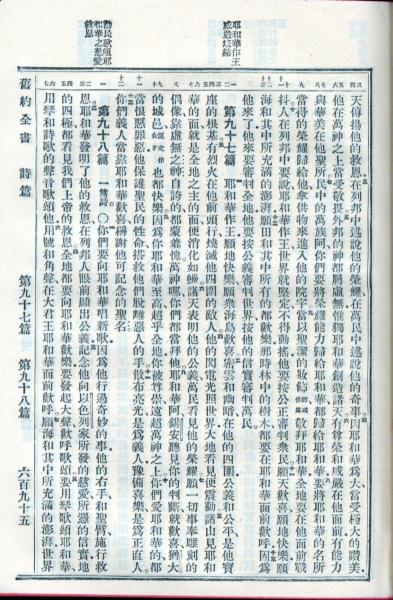 耶和華作王
威嚴炫赫
勸民歌頌耶
和華之慈愛
救恩
舊約全書　詩篇　第九十七篇　第九十八篇　六百九十五
天傳揚他的救恩在列邦中述說他的榮耀在萬民中述說他的奇事因耶和華為大當受極大的讚美
他在萬神之上當受敬畏外邦的神都屬虛無惟獨耶和華創造諸天有尊榮和威嚴在他面前有能力
與華美在他聖所民中的萬族阿你們要將榮耀能力歸給耶和華都歸給耶和華要將耶和華的名所
當得的榮耀歸給他拿供物來進入他的院宇當以聖潔的妝飾敬拜耶和華全地要在他面前戰
抖人在列邦中要說耶和華作王世界就堅定不得動搖他要按公正審判眾民願天歡喜願地快樂願
海和其中所充滿的澎湃願田和其中所有的都歡樂那時林中的樹木都要在耶和華面前歡呼因為
他來了他來要審判全地他要按公義審判世界按他的信實審判萬民
第九十七篇　耶和華作王願地快樂願眾海島歡喜密雲和幽暗在他的四圍公義和公平是他寶
座的根基有烈火在他前頭行燒滅他四圍的敵人他的閃電光照世界大地看見便震動諸山見耶和
華的面就是全地之主的面便消化如蠟諸天表明他的公義萬民看見他的榮耀願一切事奉雕刻的
偶像靠虛無之神自誇的都蒙羞愧萬神哪你們都當拜他耶和華阿錫安聽見你的判斷就歡喜猶大
的城邑也都快樂因為你耶和華至高超乎全地你被尊崇遠超萬神之上你們愛耶和華的都
當恨惡罪惡他保護聖民的性命搭救他們脫離惡人的手散布亮光是為義人豫備喜樂是為正直人
你們義人當靠耶和華歡喜稱謝他可記念的聖名
第九十八篇　一篇詩○你們要向耶和華唱新歌因為他行過奇妙的事他的右手和聖臂施行救
恩耶和華發明了他的救恩在列邦人眼前顯出公義記念他向以色列家所發的慈愛所憑的信實地
的四極都看見我們上帝的救恩全地都要向耶和華歡樂要發起大聲歡呼歌頌要用琴歌頌耶和華
用琴和詩歌的聲音歌頌他用號和角聲在大君王耶和華面前歡呼願海和其中所充滿的澎湃世界